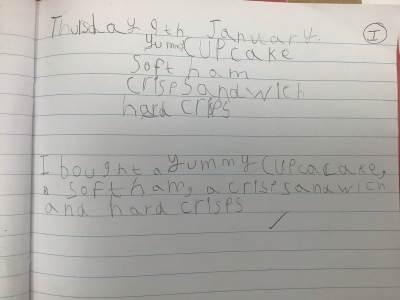 Thursday 9th January.
I
yummy cupcake
soft ham
crispsandwich
hard crisps
I bought a yummy cupcacake,
a soft ham, a crispsandwich
and hard crisps